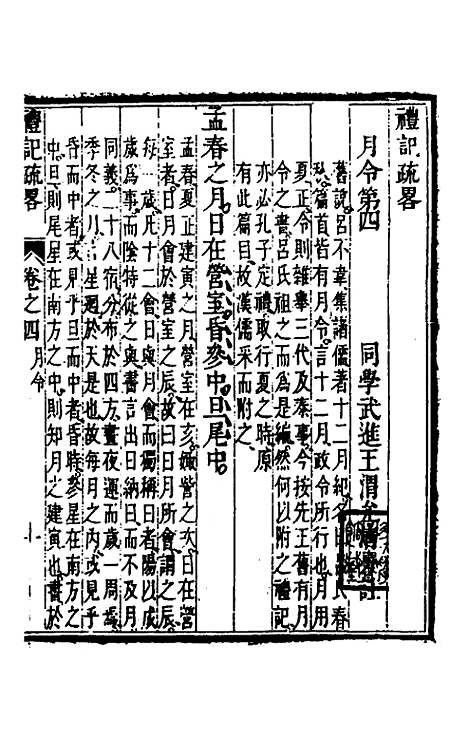 禮記疏畧
月令第四　同學武進王渭
舊說呂不韋集諸儒著十二月紀名曰呂氏春
秋篇首皆有月令言十二月政令所行也月用
夏正令則雜舉三代及秦事今按先王舊有月
令之書呂氏祖之而為是編然何以附之禮記
亦必孔子定禮取行夏之時原
有此篇目故漢儒采而附之
孟春之月日在營室昏參中旦尾中
孟春夏正建寅之月營室在亥娵訾之次日在營
室者日月會於營室之辰故曰日月所會謂之辰
每一歲凡十二會日與月會而獨稱日者陽以成
歲為事而陰特從之與書言出日納日而不及月
同義二十八宿分布於四方晝夜運而歲一周焉
季冬之月星廻於天是也故每月之內或見乎
昏而中者或見乎旦而中者昏時參星在南方之
中旦則尾星在南方之中則知月之建寅也書於
禮記疏畧　卷之四　月令